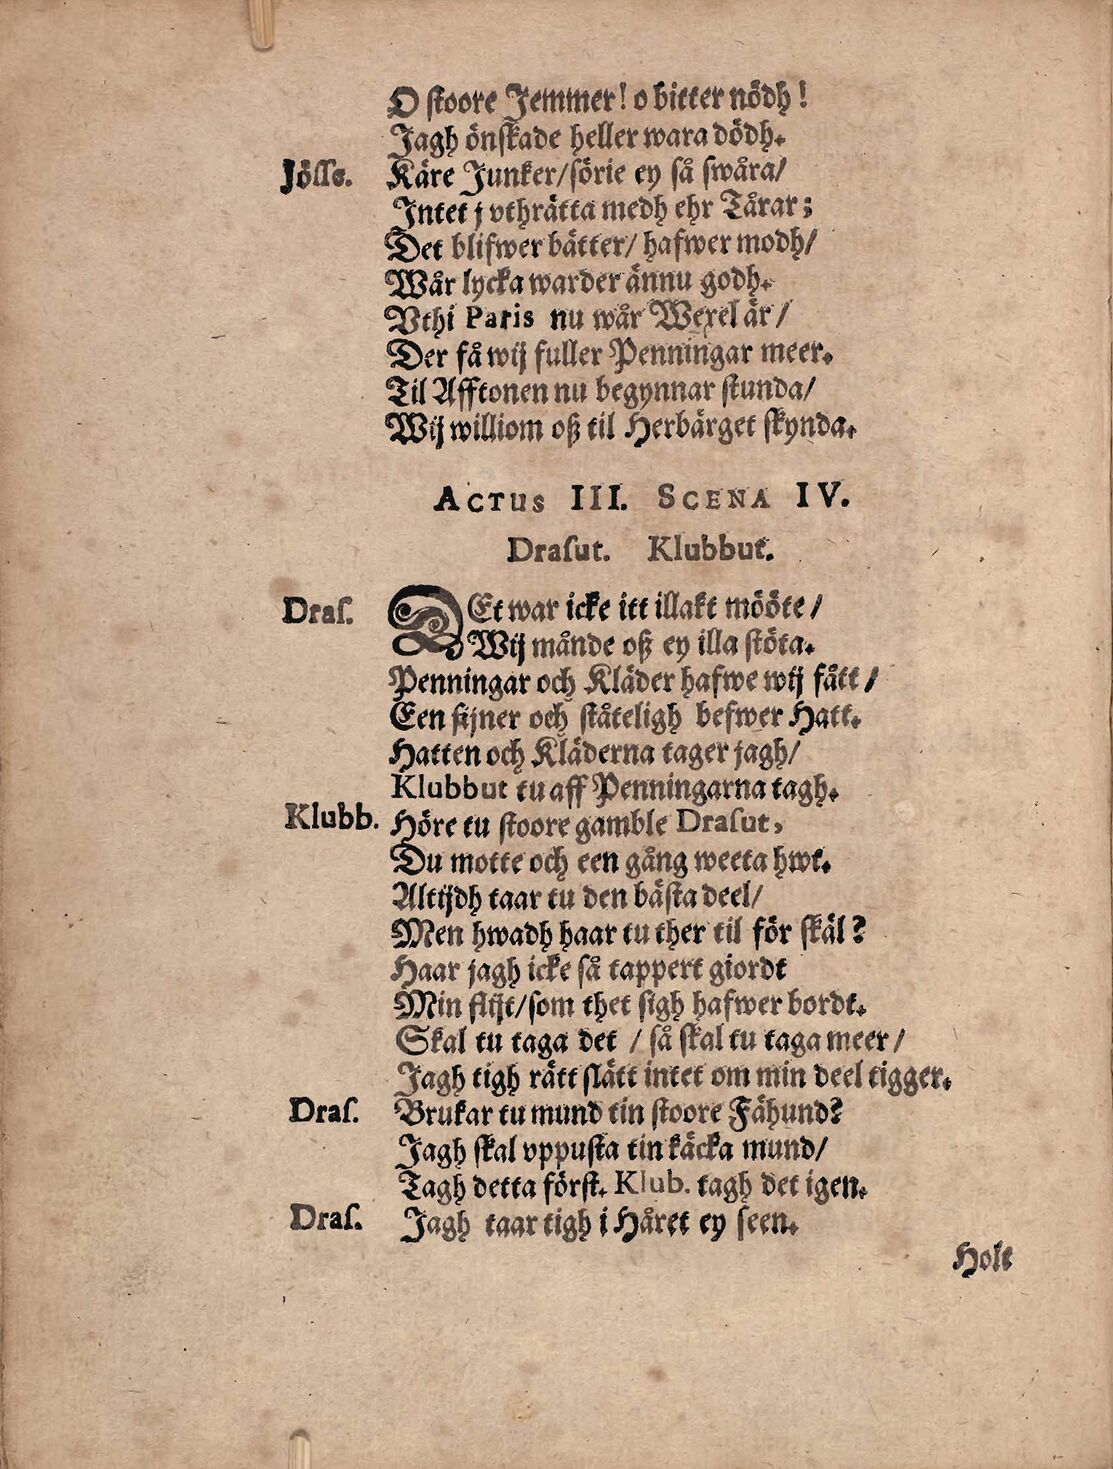 O stoore Jemmer! o bitter nödh!
Jagh önskade heller wara dödh.
Jösse. Käre Junker/ sörie ey så swåra/
Intet j vthrätta medh ehr Tårar;
Det blifwer bätter/ hafwer modh/
Wår lycka warder ännu godh.
Vthi Paris nu wår Wexel är/
Der få wij fuller Penningar meer.
Til Afftonen nu begynnar stunda/
Wij williom oß til Herbärget skynda.
ACTUS III. SCENA IV.
Drasut. Klubbut.
Dras. DEt war icke itt illakt mööte/
Wij månde oß ey illa stöta.
Penningar och Kläder hafwe wij fått/
Een sijner och ståteligh befwer Hatt.
Hatten och Kläderna tager jagh/
Klubbut tu aff Penningarna tagh.
Klubb. Höre tu stoore gamble Drasut,
Du motte och een gång weeta hwt.
Altijdh taar tu den bästa deel/
Men hwadh haar tu ther til för skäl?
Haar jagh icke så tappert giordt
Min flijt/ som thet sigh hafwer bordt.
Skal tu taga det / så skal tu taga meer/
Jagh tigh rätt slätt intet om min deel tigger.
Dras. Brukar tu mund tin stoore Fähund?
Jagh skal vppusta tin käcka mund/
Tagh detta först. Klub. tagh det igen.
Dras. Jagh taar tigh i Håret ey seen.
Holt